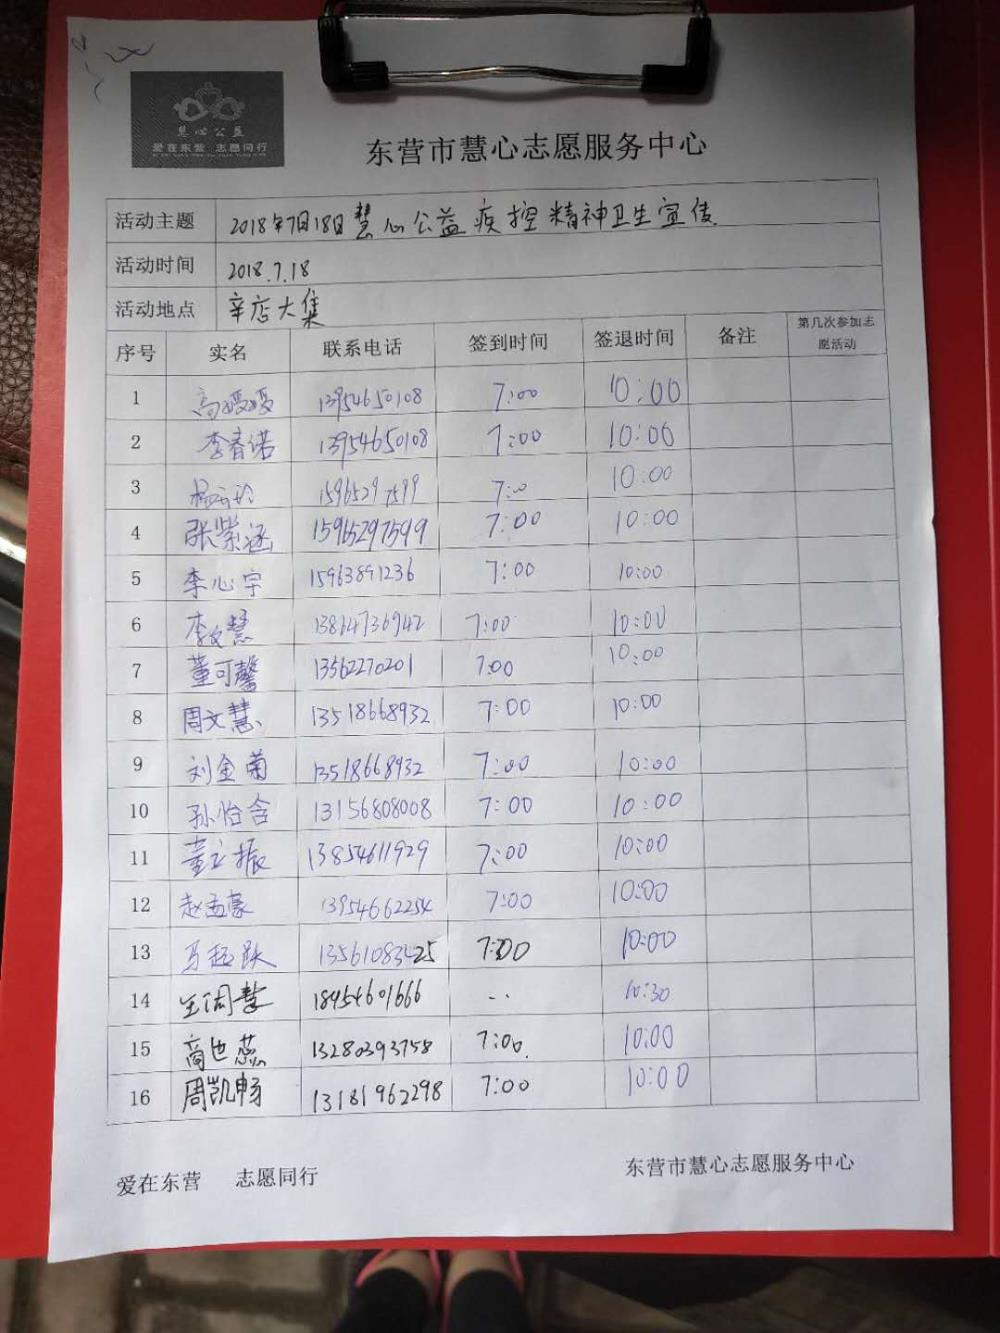 慧心公益
爱在东营 志愿同行
东营市慧心志愿服务中心
活动主题 2018年7月18日慧心公益疾控精神卫生宣传
活动时间 2018.7.18
活动地点 辛店大集
序号 实名 联系电话 签到时间 签退时间 备注 第几次参加志愿活动
1 高媛媛 13954650108 7:00 10:00
2 李春诺 13954650108 7:00 10:00
3 15965297599 7:00 10:00
4 张紫涵 15965297599 7:00 10:00
5 李心宇 15963891236 7:00 10:00
6 李文慧 13814736942 7:00 10:00
7 董可馨 13562270201 7:00 10:00
8 周文慧 13518668932 7:00 10:00
9 刘金菊 13518668932 7:00 10:00
10 孙怡含 13156808008 7:00 10:00
11 董立振 13854611929 7:00 10:00
12 赵孟豪 13954662254 7:00 10:00
13 马超跃 13561083425 7:00 10:00
14 18954601666 .. 10:30
15 商也蕊 13280393758 7:00. 10:00
16 周凯畅 13181962298 7:00 10:00
爱在东营 志愿同行 东营市慧心志愿服务中心